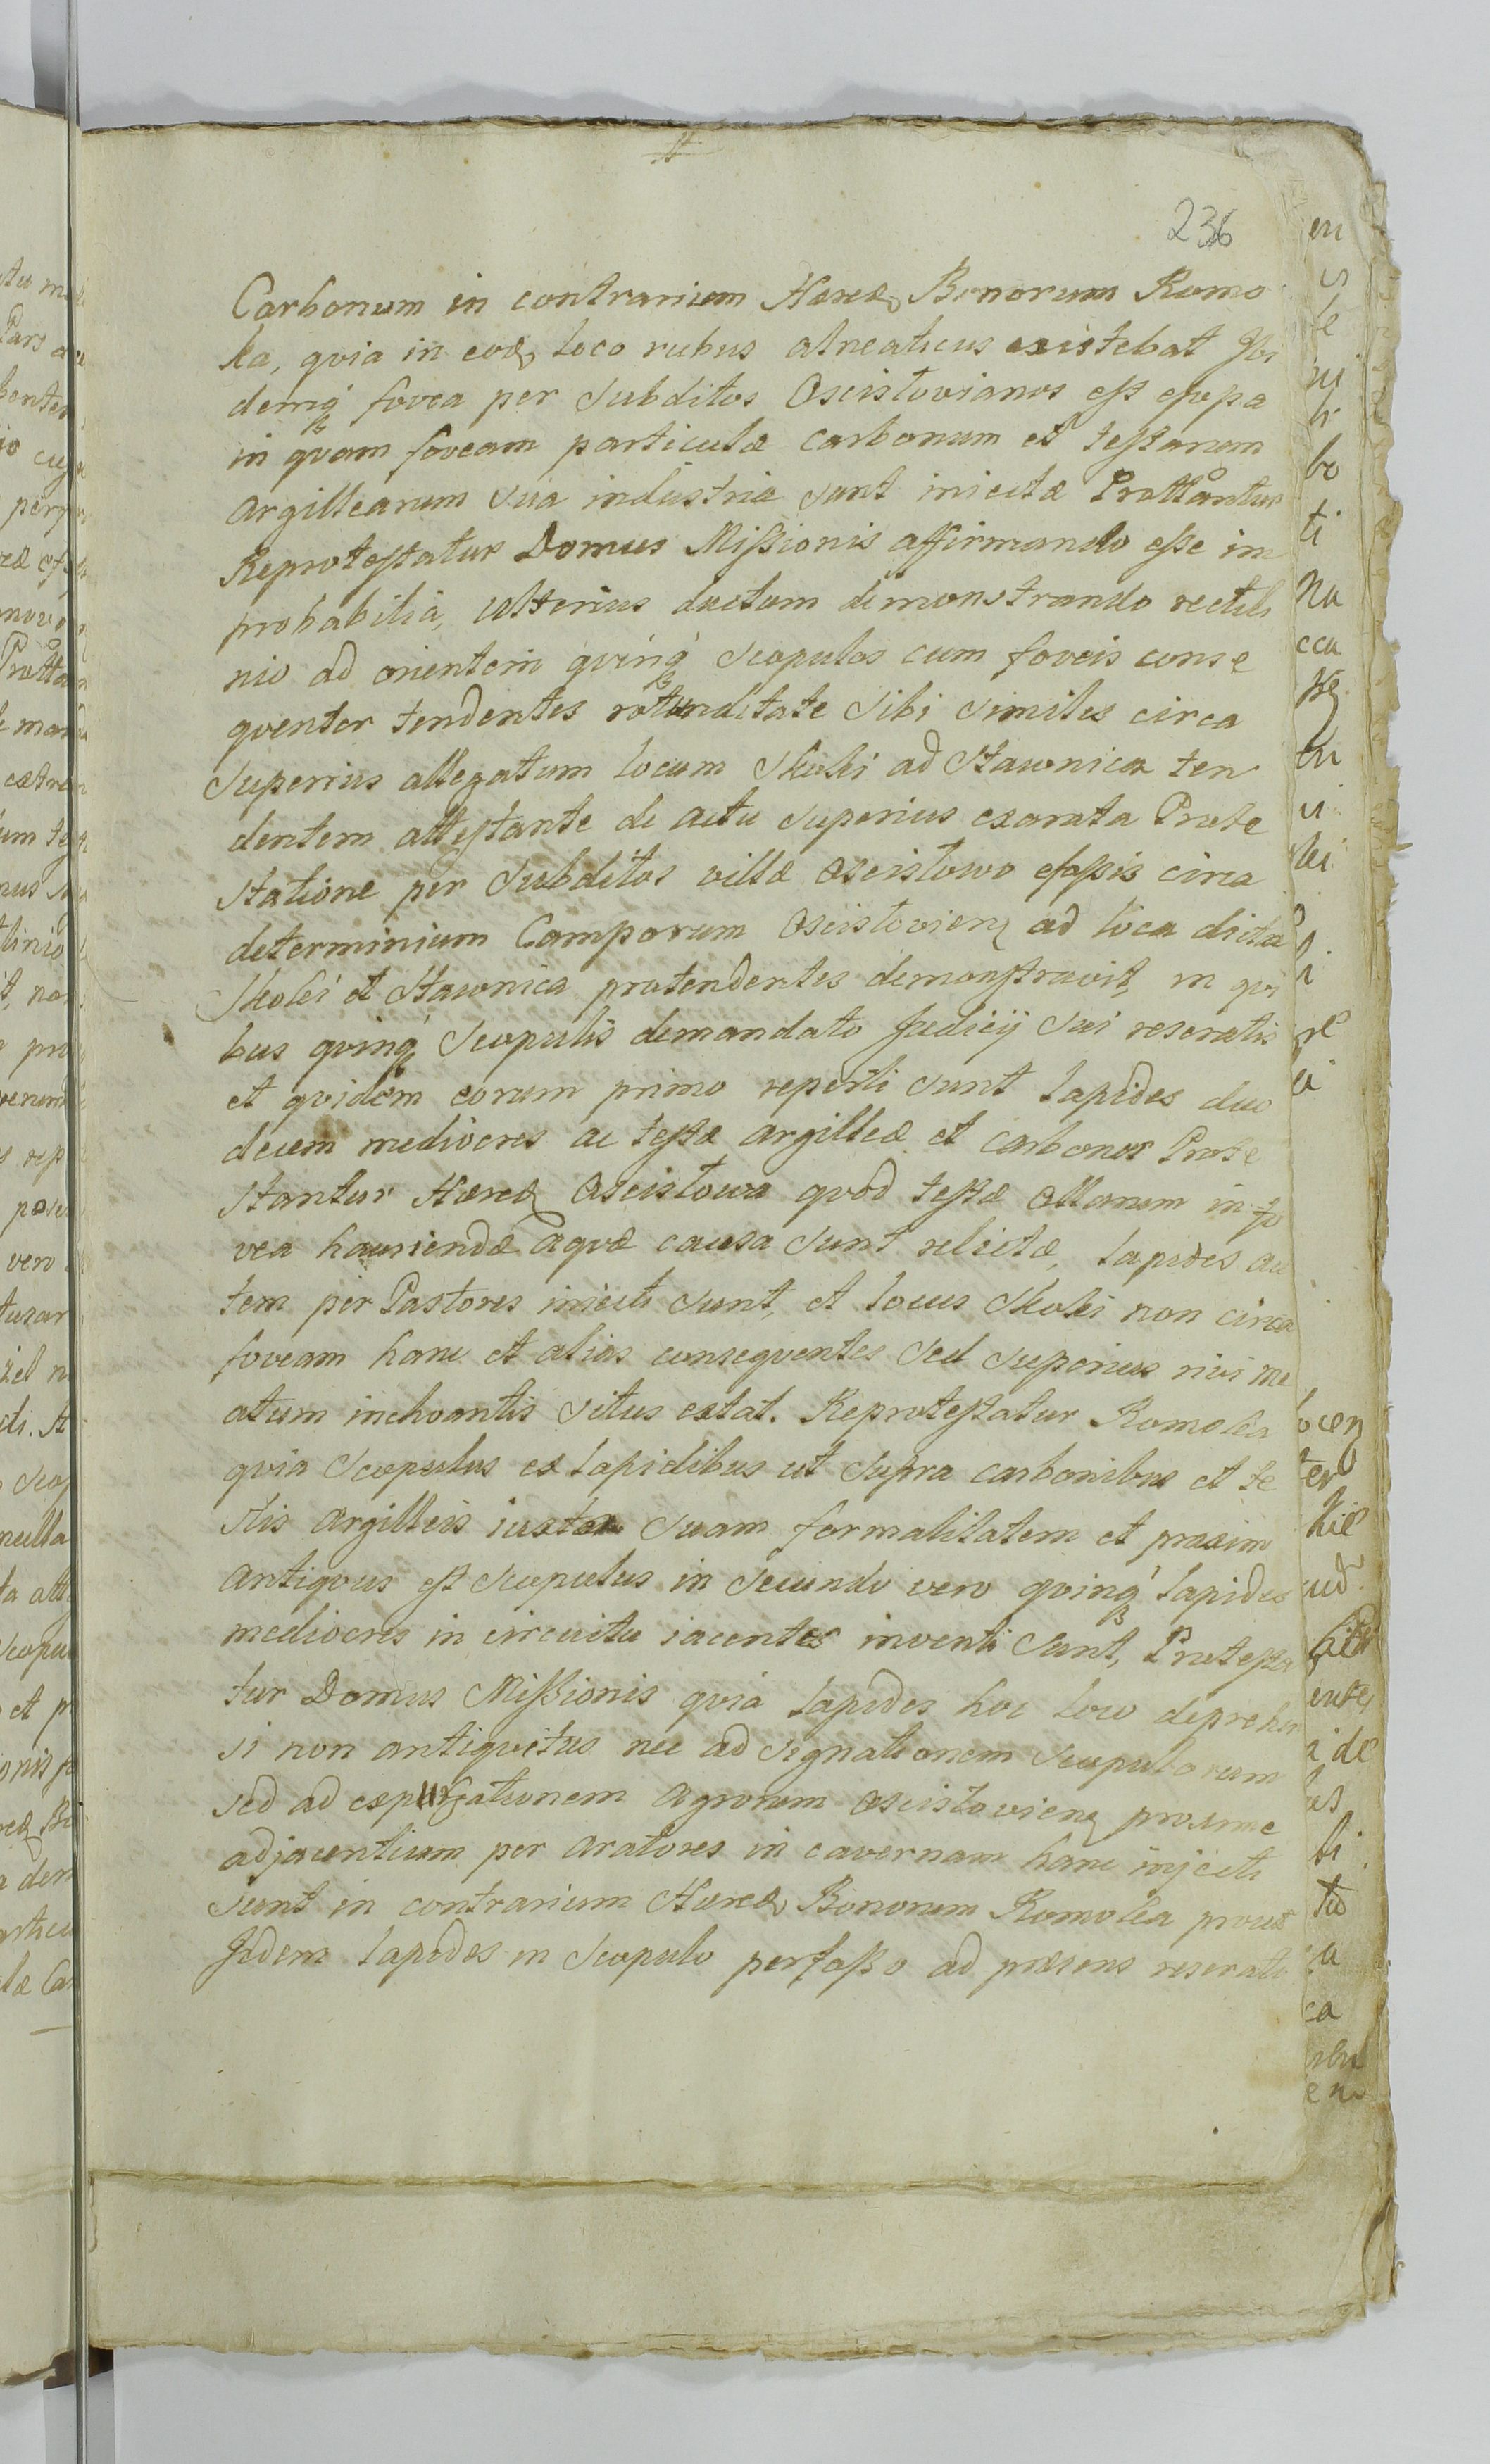 236
Carbonum in contrarium Hæred Bonorum Romo
ka, qvia in eod loco rubus alneaticus existebat Ibi
demq fovea per Subditos Oscistovianos est effossa
in qvam foveam particulæ carbonum et testarum
argillearum Sua industria sunt iniectæ Prottantur
Reprotestatur Domus Missionis affirmando esse im
probabilia, ulterius ductum demonstrando rectili
nio ad orientem qvinq Scopulos cum foveis conse
qventer tendentes rotunditate Sibi Similes circa
Superius allegatum locum Skoki ad Stawnica ten
dentem attestante de actu Superius exarata Prote
statione per Subditos villæ Oscistowo effossis circa
determinium Camporum Oscistovien ad loca dicta
Skoki et Stawnica protendentes demonstravit, in qvi
bus qvinq Scopulis demandato Judicij Sui reseratis
et qvidem eorum primo reperti sunt lapides duo
decem mediocres ac testæ argilleæ et carbones Prote
stantur Hæred Oscistowa qvod testæ ollarum in fo
vea hauriendæ aqvæ causa Sunt relictæ, lapides au
tem per Pastores iniecti Sunt, et locus Skoki non circa
foveam hanc et alias conseqventes Sed Superius rivi me
atum inchoantis Situs extat. Reprotestatur Romoka
qvia Scopulus ex lapidibus ut Supra carbonibus et te
stis argilleis iuxta Suam formalitatem et praxim
antiqvus est Scopulus in Secundo vero qvinq lapides
mediocres in circuitu iacentes inventi Sunt, Protesta
tur Domus Missionis qvia lapides hoc loco deprehen
si non antiqvitus nec ad Signationem Scopulorum
sed ad expurgationem agrorum Oscistovien proxime
adjacentium per aratores in cavernam hanc injecti
sunt in contrarium Hæred Bonorum Romoka prout
Iidem lapides in Scopulo perfosso ad præsens reserato